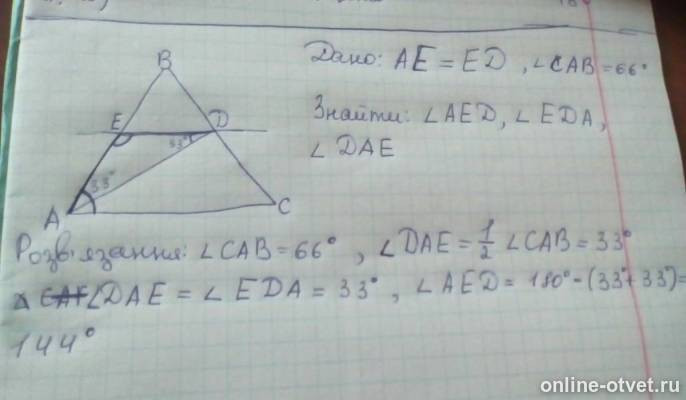 B
E
D
33°
33°
A
C
Дано: AE = ED , ∠CAB = 66°
Знайти: ∠AED, ∠EDA,
∠DAE
Розв'язання: ∠CAB = 66° , ∠DAE = 1/2 ∠CAB = 33°
∠DAE = ∠EDA = 33° , ∠AED = 180° - (33° + 33°) =
144°
online-otvet.ru